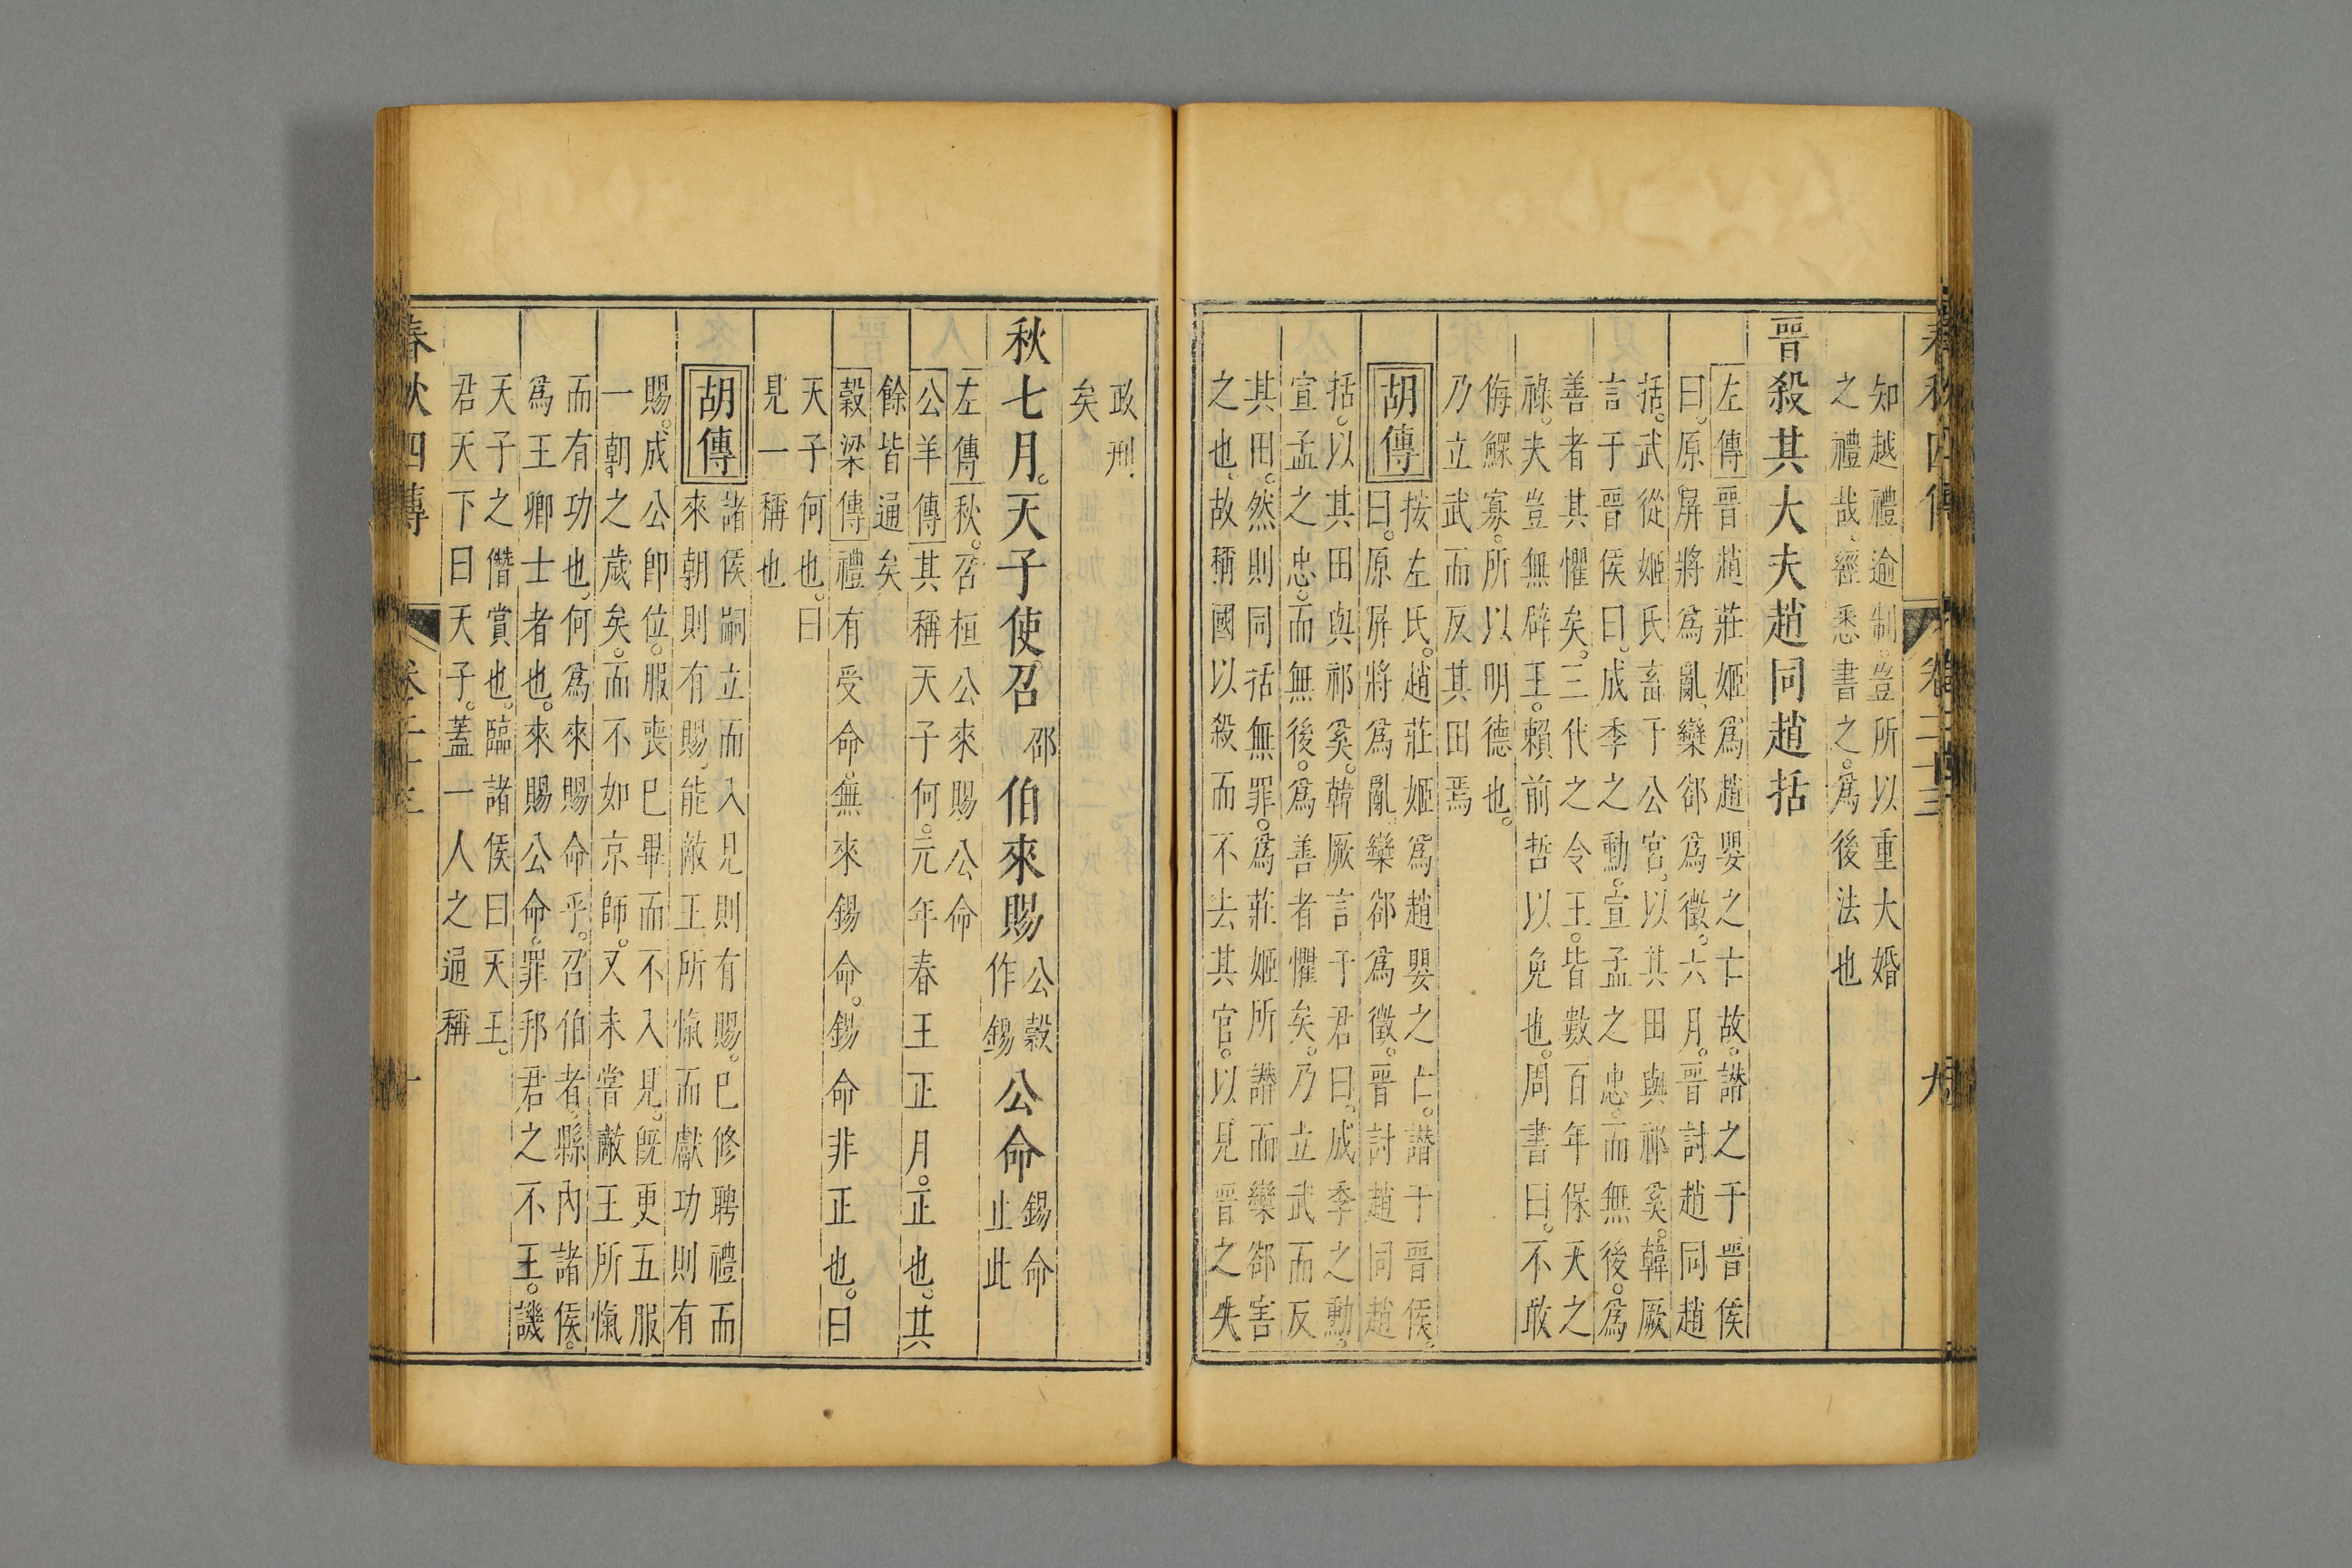 春秋四傳 卷二十三 九
知越禮逾制。豈所以重大婚
之禮哉、經悉書之。爲後法也
晉殺其大夫趙同趙括
左傳晉趙莊姬爲趙嬰之亡故。譖之于晉侯
曰。原屏將爲亂、欒郤爲徵。六月。晉討趙同趙
括。武從姬氏畜于公宮。以其田與祁奚。韓厥
言于晉侯曰。成季之勳。宣孟之忠。而無後。爲
善者其懼矣。三代之令王。皆數百年保天之
祿。夫豈無辟王。賴前哲以免也。周書曰。不敢
侮鰥寡。所以明德也。
乃立武而反其田焉
胡傳按左氏。趙莊姬爲趙嬰之亡。譖于晉侯。
曰。原屏將爲亂。欒郤爲徵。晉討趙同趙
括。以其田與祁奚。韓厥言于君曰。成季之勳。
宣孟之忠。而無後。爲善者懼矣。乃立武而反
其田。然則同括無罪。爲莊姬所譖而欒郤害
之也、故稱國以殺而不去其官。以見晉之失
政刑
矣
秋七月。天子使召邵伯來賜公穀作錫公命錫命止此
左傳秋。召桓公來賜公命
公羊傳其稱天子何。元年春王正月。正也。其
餘皆通矣
穀梁傳禮有受命。無來錫命。錫命非正也。曰
天子何也。曰
見一稱也
胡傳諸侯嗣立而入見則有賜。已修聘禮而
來朝則有賜、能敵王所愾而獻功則有
賜。成公即位。服喪已畢而不入見。既更五服
一朝之歲矣。而不如京師。又未嘗敵王所愾
而有功也、何爲來賜命乎。召伯者、縣內諸侯。
爲王卿士者也。來賜公命。罪邦君之不王。譏
天子之僭賞也。臨諸侯曰天王。
君天下曰天子。蓋一人之通稱
春秋四傳 卷二十三 十